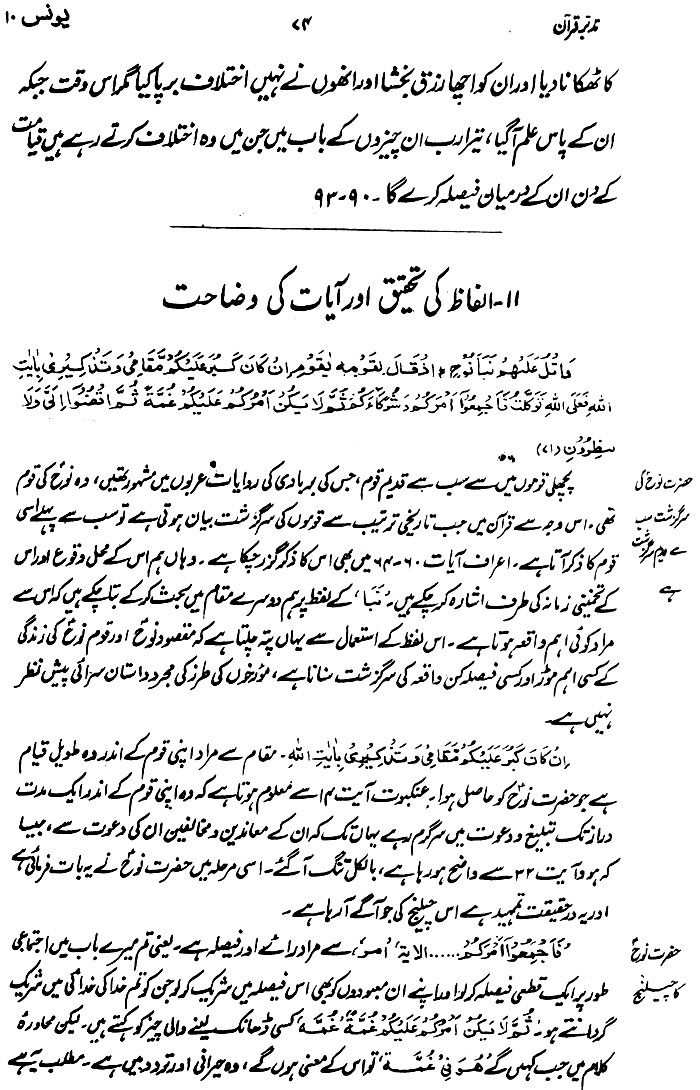 تدبرِ قرآن ۷۴ یونس ۱۰
کا ٹھکانا دیا اور ان کو اچھا رزق بخشا اور انھوں نے نہیں اختلاف برپا کیا مگر اس وقت جبکہ
ان کے پاس علم آگیا، تیرا رب ان چیزوں کے باب میں جن میں وہ اختلاف کرتے رہے ہیں قیامت
کے دن ان کے درمیان فیصلہ کرے گا۔ ۹۰-۹۳
۱۱- الفاظ کی تحقیق اور آیات کی وضاحت
وَاتْلُ عَلَيْهِمْ نَبَأَ نُوحٍ ۘ إِذْ قَالَ لِقَوْمِهِ يٰقَوْمِ إِنْ كَانَ كَبُرَ عَلَيْكُمْ مَّقَامِي وَتَذْكِيرِي بِاٰيٰتِ
اللهِ فَعَلَى اللهِ تَوَكَّلْتُ فَأَجْمِعُوْا أَمْرَكُمْ وَشُرَكَآءَكُمْ ثُمَّ لَا يَكُنْ أَمْرُكُمْ عَلَيْكُمْ غُمَّةً ثُمَّ اقْضُوْا إِلَيَّ وَلَا
تُنْظِرُوْنِ (۷۱)
حضرت نوحؑ کی
سرگزشت سب
سے قدیم سرگزشت
ہے
پچھلی قوموں میں سے سب سے قدیم قوم، جس کی بربادی کی روایات عربوں میں مشہور تھیں، وہ نوحؑ کی قوم
تھی۔ اس وجہ سے قرآن میں جب تاریخی ترتیب سے قوموں کی سرگزشت بیان ہوتی ہے تو سب سے پہلے اسی
قوم کا ذکر آتا ہے۔ اعراف آیات ۶۰-۶۴ میں بھی اس کا ذکر گزر چکا ہے۔ وہاں ہم اس کے محل وقوع اور اس
کے تخمینی زمانہ کی طرف اشارہ کر چکے ہیں۔ 'نبا' کے لفظ پر ہم دوسرے مقام میں بحث کر کے بتا چکے ہیں کہ اس سے
مراد کوئی اہم واقعہ ہوتا ہے۔ اس لفظ کے استعمال سے یہاں پتہ چلتا ہے کہ مقصود نوحؑ اور قوم نوحؑ کی زندگی
کے کسی اہم موڑ اور کسی فیصلہ کن واقعہ کی سرگزشت سنانا ہے، مؤرخوں کی طرز کی مجرد داستان سرائی پیش نظر
نہیں ہے۔
اِنْ كَانَ كَبُرَ عَلَيْكُمْ مَّقَامِيْ وَتَذْكِيْرِيْ بِاٰيٰتِ اللهِ۔ مقام سے مراد اپنی قوم کے اندر وہ طویل قیام
ہے جو حضرت نوحؑ کو حاصل ہوا۔ عنکبوت آیت ۱۴ سے معلوم ہوتا ہے کہ وہ اپنی قوم کے اندر ایک مدت
دراز تک تبلیغ و دعوت میں سرگرم رہے یہاں تک کہ ان کے معاندین و مخالفین ان کی دعوت سے، جیسا
کہ ہود آیت ۳۲ سے واضح ہو رہا ہے، بالکل تنگ آ گئے۔ اسی مرحلہ میں حضرت نوحؑ نے یہ بات فرمائی ہے
اور یہ درحقیقت تمہید ہے اس چیلنج کی جو آگے آرہا ہے۔
حضرت نوحؑ
کا چیلنج
'فَاَجْمِعُوْا اَمْرَكُمْ...... الاية' 'امر' سے مراد رائے اور فیصلہ ہے۔ یعنی تم میرے باب میں اجتماعی
طور پر ایک قطعی فیصلہ کر لو اور اپنے ان معبودوں کو بھی اس فیصلہ میں شریک کر لو جن کو تم خدا کی خدائی میں شریک
گردانتے ہو۔ ثُمَّ لَا يَكُنْ اَمْرُكُمْ عَلَيْكُمْ غُمَّةً 'غُمَّة' کسی ڈھانک لینے والی چیز کو کہتے ہیں۔ لیکن محاورۂ
کلام میں جب کہیں گے 'هُوَ فِيْ غُمَّة' تو اس کے معنی ہوں گے، وہ حیرانی اور تردد میں ہے۔ مطلب یہ ہے